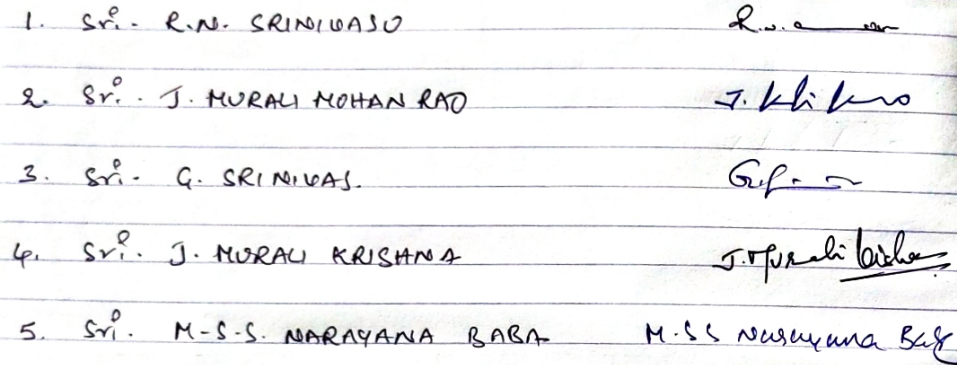 1. Sri. R.N. SRINIVASU R.N.
2. Sri. J. MURALI MOHAN RAO J.
3. Sri. G. SRINIVAS.
4. Sri. J. MURALI KRISHNA J. Murali
5. Sri. M-S-S. NARAYANA BABA M.SS Narayana